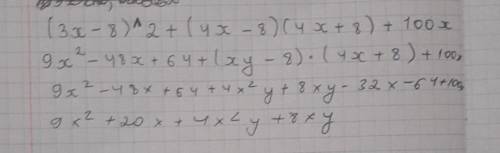 (3x-8)^2+(4x-8)(4x+8)+100x
9x²-48x+64+(xy-8)·(4x+8)+100x
9x²-48x+64+4x²y+8xy-32x-64+100
9x²+20x+4x²y+8xy